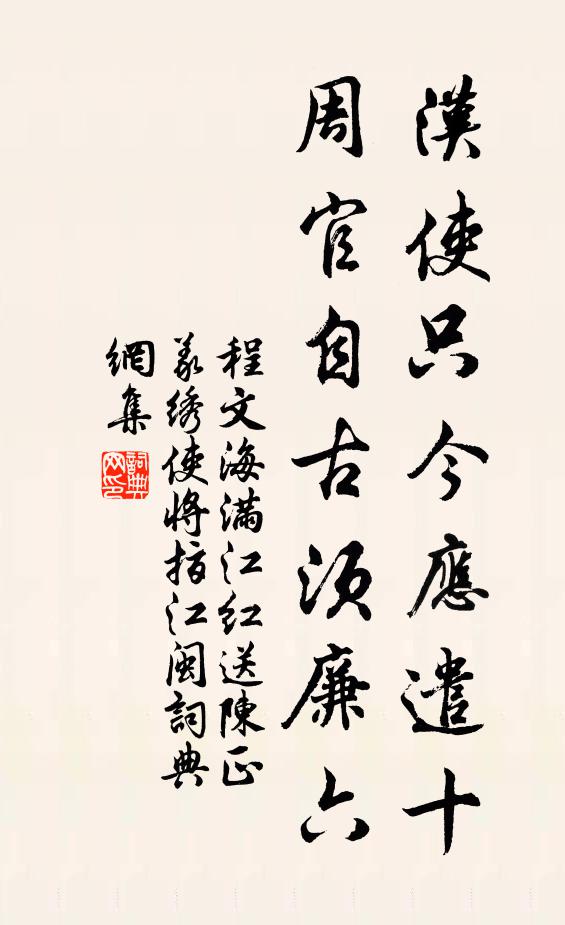 漢使只今應遣十
周官自古須廉六
程文海滿江紅送陳正
義綉使將指江閩詞典
網集
詞典
网印